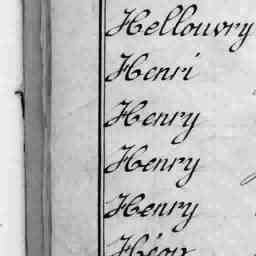 Hellouvry
Henri
Henry
Henry
Henry